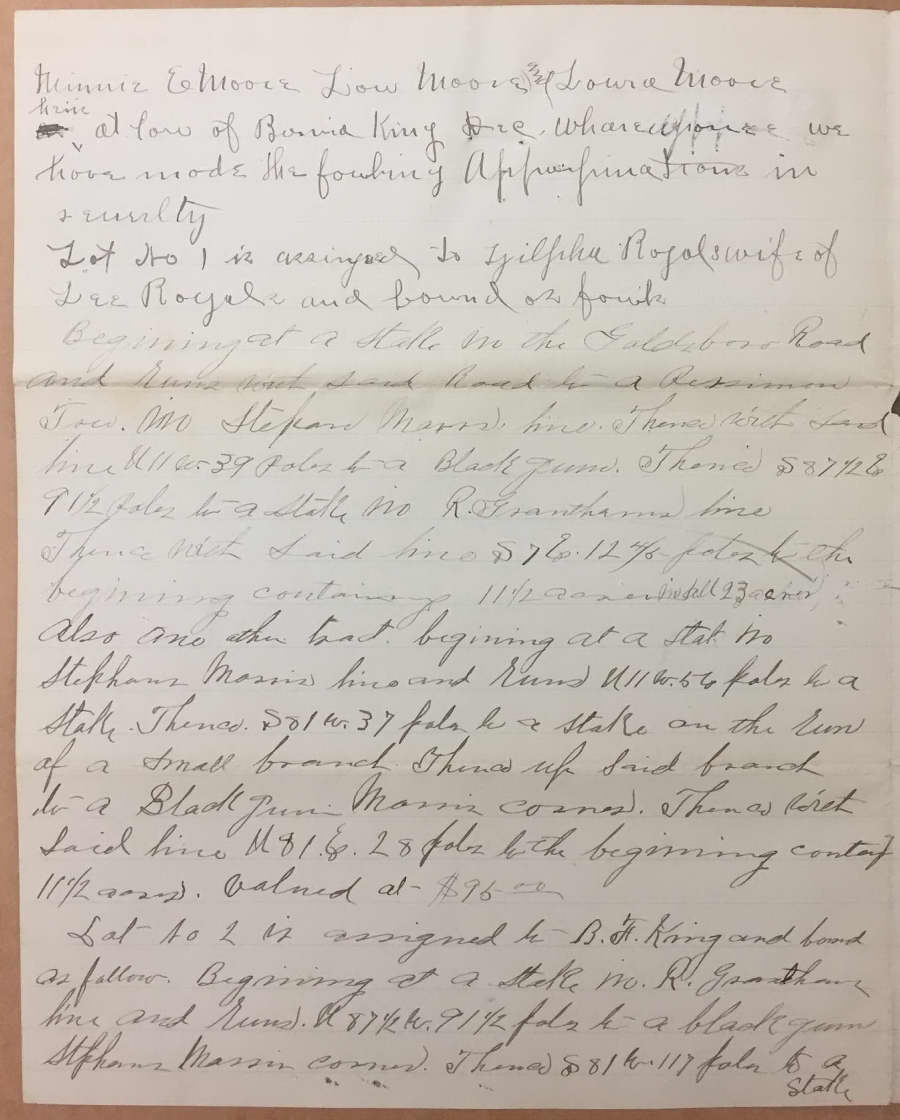 Minnie E Moore Lou Moore and Loura Moore
heir
at low of Bunia King Dec. Whareuponee we
hove mode the fowling in
seuerlty
Lot No 1 is assinged to Zilpha Royols wife of
Lee Royals and bound os fowls
Begining at a Stake in the Goldsboro Road
and Runs with said Road to a Persimon
Tree. in Stephens Morris line. Thence with said
line N 11 W. 39 poles to a Black gum. Thence S 87 1/2 E
91 1/2 poles to a Stake in R. Granthams line
Thence with said line S 7 E. 12 4/5 poles to the
begining containing 11 1/2 acres in all 23 acres
Also one other tract begining at a Stak in
Stephens Morris line and Runs N 11 W. 56 poles to a
Stake. Thence. S 81 W. 37 poles to a Stake on the Run
of a small branch Thence up said branch
to a Black gum Morris corner. Thence with
said line N 81. E. 28 poles to the begining contai
11 1/2 acres. valued at $95 00
Lot No 2 is assigned to B. F. King and bound
as follow. Begining at a Stake in. R. Grantham
line and Runs. N 87 1/2 W. 91 1/2 poles to a black gum
Stephens Morris corner. Thence S 81 W. 117 poles to a
Stake